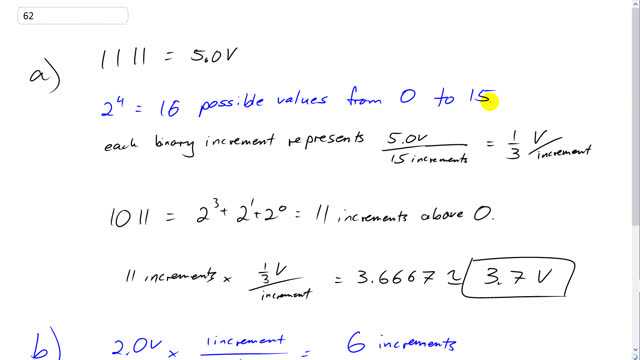 62
a) 1111 = 5.0V
2^4 = 16 possible values from 0 to 15
each binary increment represents 5.0V / 15 increments = 1/3 V/increment
1011 = 2^3 + 2^1 + 2^0 = 11 increments above 0.
11 increments × 1/3 V / increment = 3.6667 ≈ 3.7 V
b) 2.0V × 1 increment = 6 increments